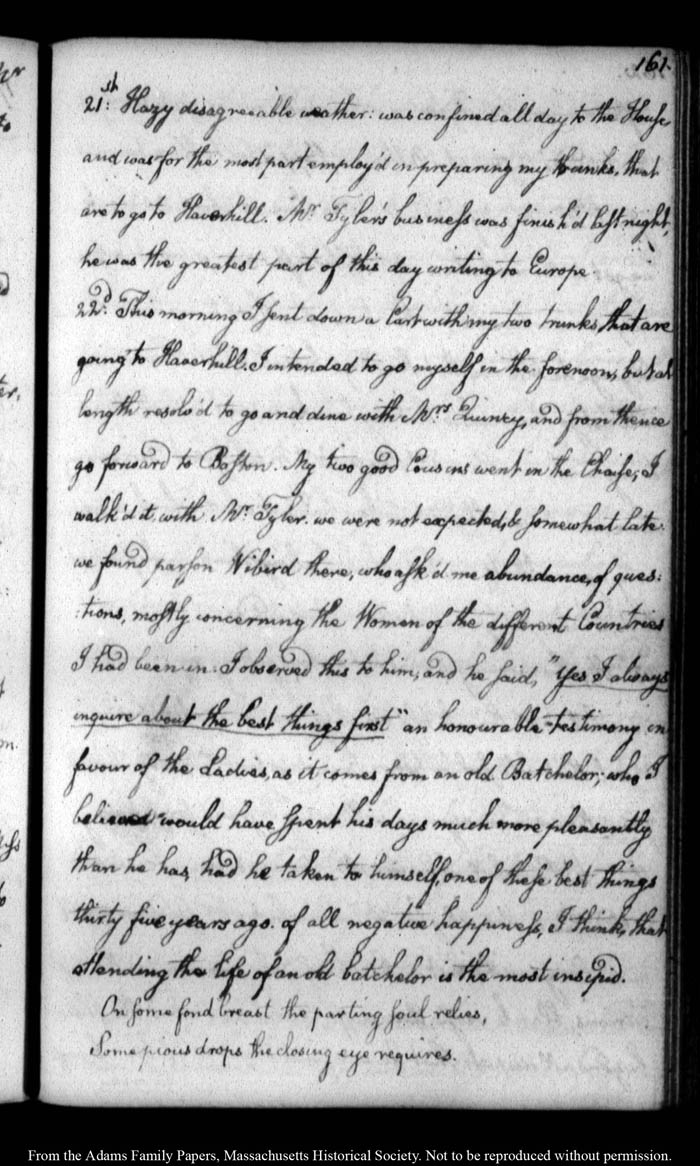 161.
21st: Hazy disagreeable weather: was confined all day to the House,
and was for the most part employ'd in preparing my trunks, that
are to go to Haverhill. Mr. Tyler's business was finish'd last night,
he was the greatest part of this day writing to Europe.
22d. This morning I sent down a Cart with my two trunks that are
going to Haverhill. I intended to go myself in the forenoon, but at
length resolv'd to go and dine with Mrs. Quincy, and from thence
go forward to Boston. My two good Cousins went in the Chaise, I
walk'd it with Mr. Tyler. we were not expected, & somewhat late.
we found parson Wibird there, who ask'd me abundance, of ques:
:tions, mostly concerning the Women of the different Countries
I had been in: I observed this to him, and he said, "Yes I always
inquire about the best things first" an honourable testimony in
favour of the Ladies, as it comes from an old Batchelor; who I
believe would have spent his days much more pleasantly
than he has, had he taken to himself, one of these best things
thirty five years ago. of all negative happiness, I think, that
attending the life of an old batchelor is the most insipid.
On some fond breast the parting soul relies,
Some pious drops the closing eye requires.
From the Adams Family Papers, Massachusetts Historical Society. Not to be reproduced without permission.